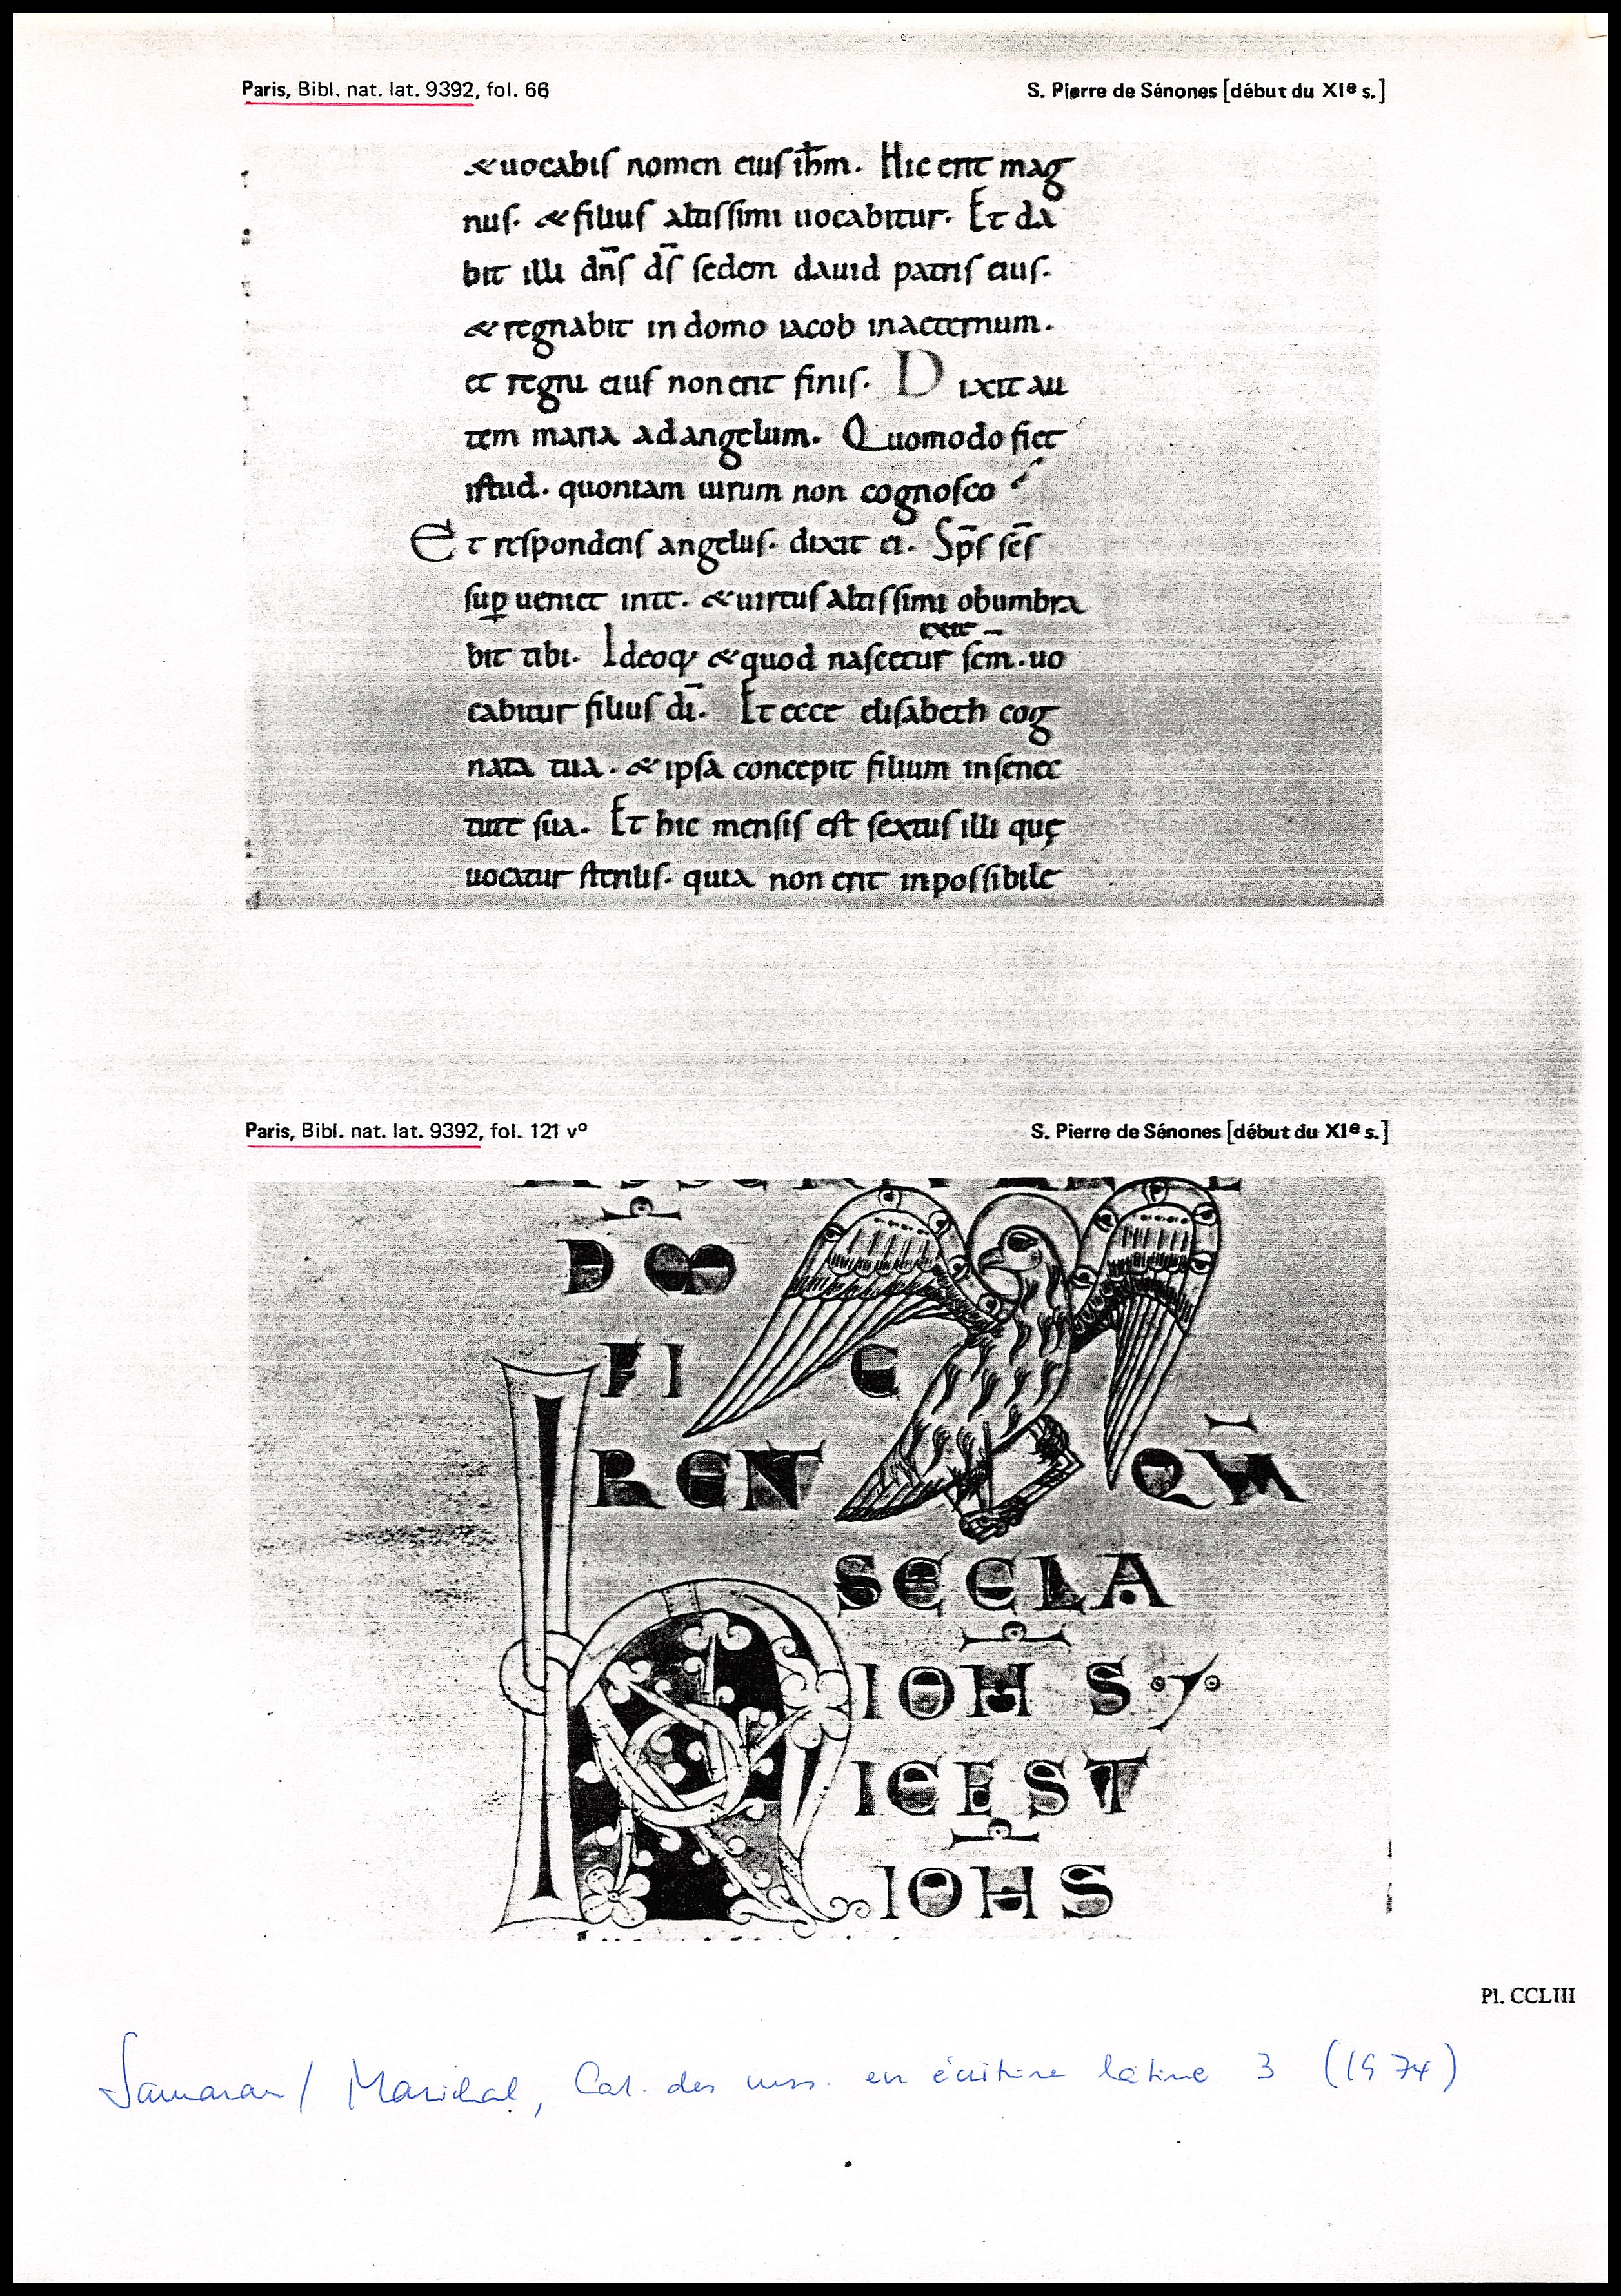 Paris, Bibl. nat. lat. 9392, fol. 66
S. Pierre de Sénones [début du XIᵉ s.]
&uocabiſ nomen eiuſ ih̅m. Hic erit mag
nuſ. & filiuſ altiſſimi uocabitur. Et da
bit illi dn̅ſ dſ̅ ſedem dauid patriſ eiuſ.
& regnabit in domo iacob inaeternum.
et regni eiuſ non erit finiſ. Dixit au
tem maria ad angelum. Quomodo fiet
iſtud. quoniam uirum non cognoſco
Et reſpondenſ angeluſ. dixit ei. Sp̅ſ ſc̅ſ
ſup̱ ueniet inte. & uirtuſ altiſſimi obumbra
bit tibi. Ideoq; & quod naſcetur ſc̅m. uo
cabitur filiuſ di̅. Et ecce eliſabeth cog
nata tua. & ipſa concepit filium inſenec
tute ſua. Et hic menſiſ eſt ſextuſ illi quę
uocatur ſteriliſ. quia non erit inpoſſibile
Paris, Bibl. nat. lat. 9392, fol. 121 v°
S. Pierre de Sénones [début du XIᵉ s.]
DO̅M
FI E
REN QM̅
SEELA
h IOH̅S
ICEST
IOH̅S
Pl. CCLIII
Samaran / Marichal, Cat. des mss. en écriture latine 3 (1974)